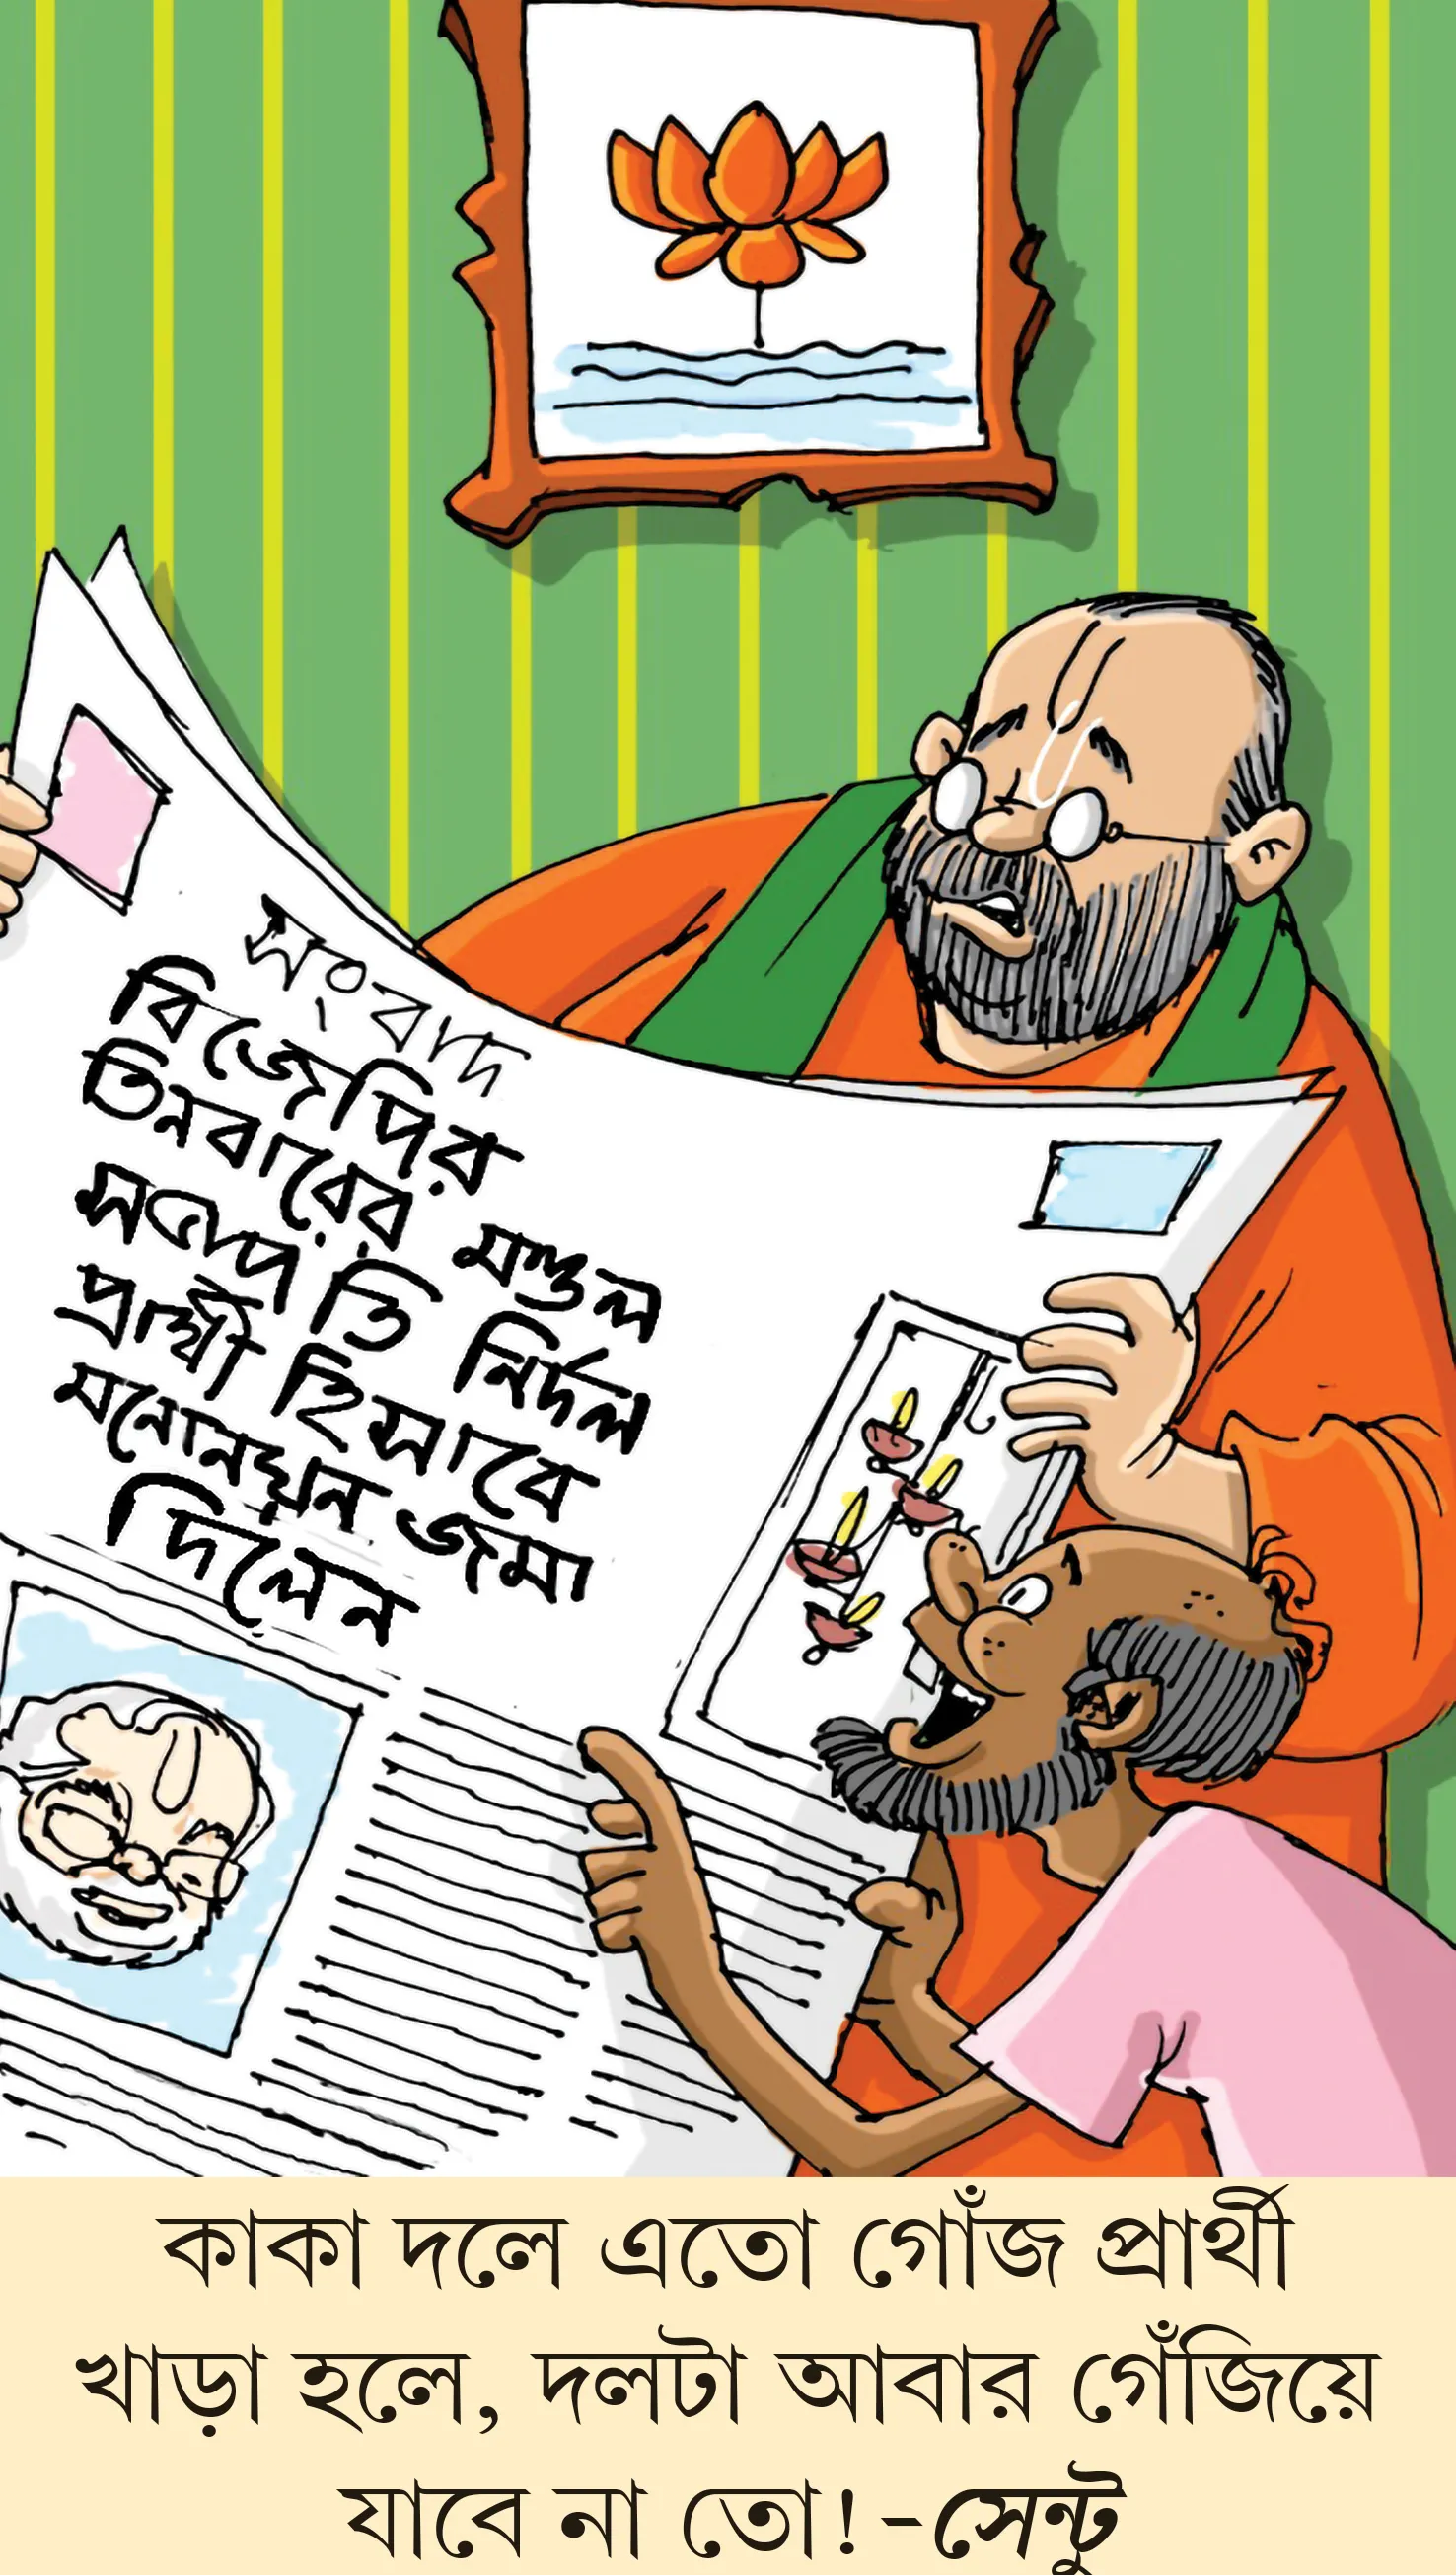 সংবাদ
বিজেপির
তিনবারের মণ্ডল
সভাপতি নির্দল
প্রার্থী হিসাবে
মনোনয়ন জমা
দিলেন
কাকা দলে এতো গোঁজ প্রার্থী
খাড়া হলে, দলটা আবার গেঁজিয়ে
যাবে না তো! -সেন্টু